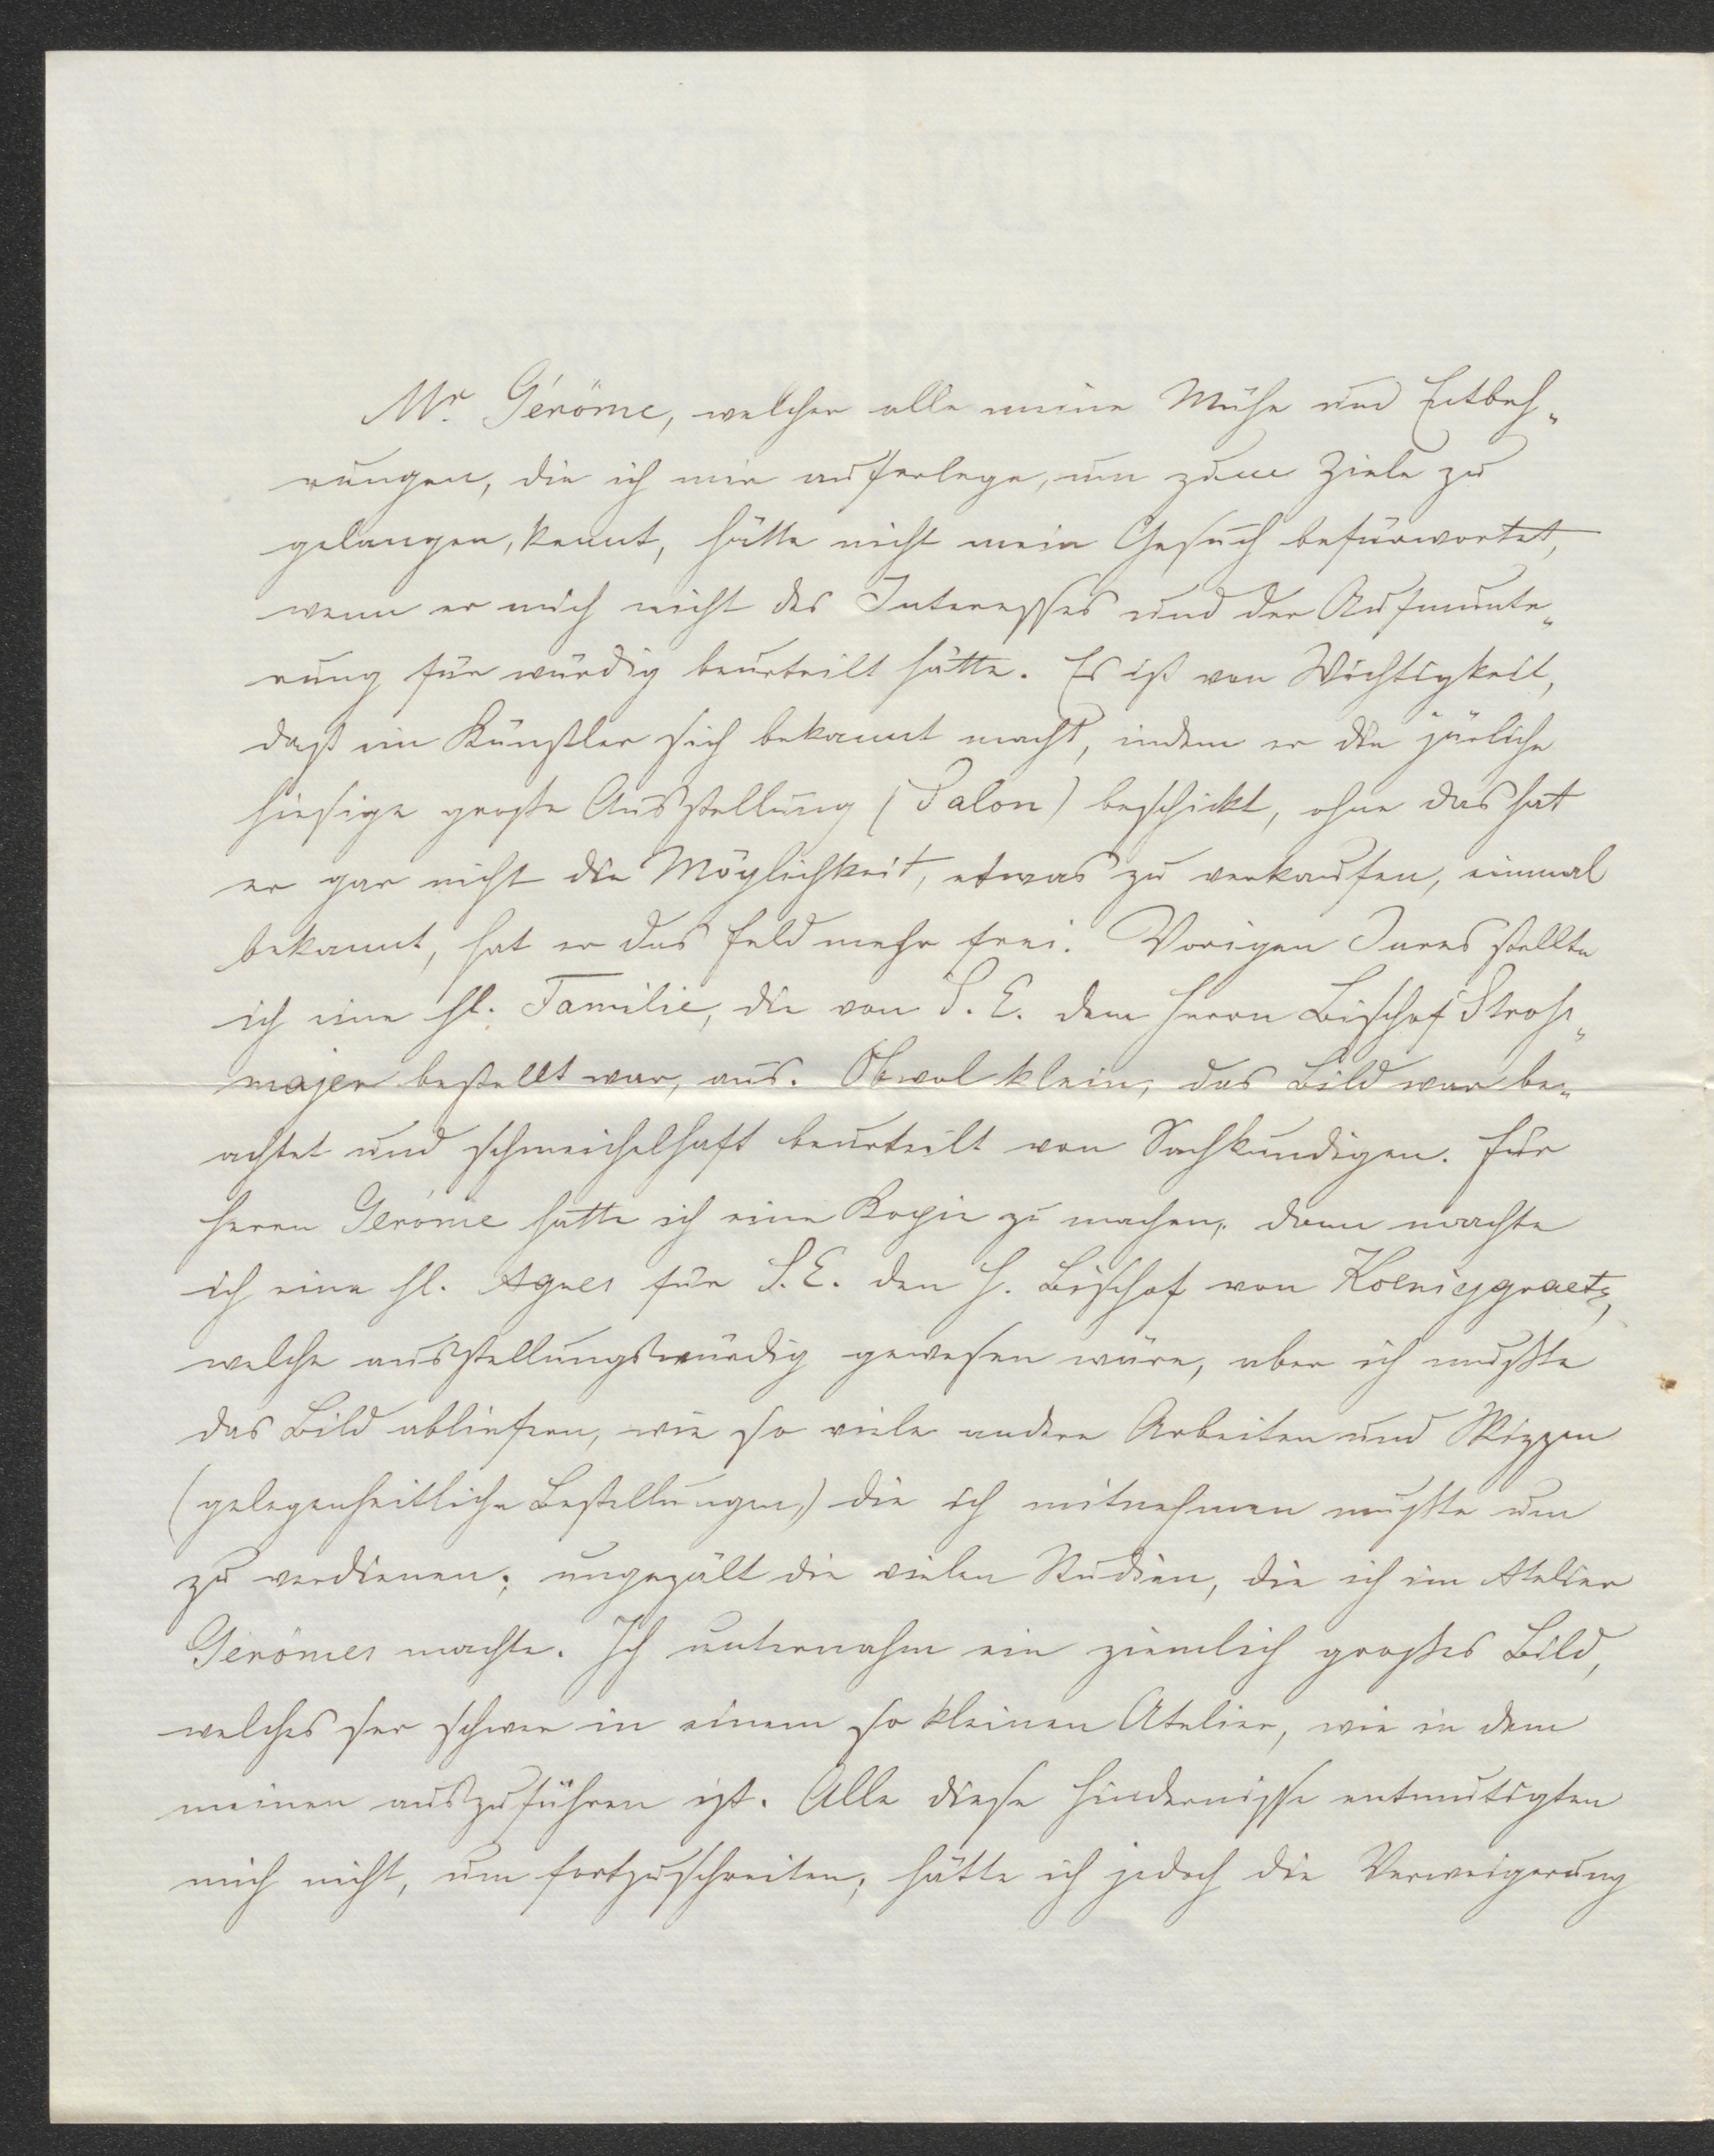 Mr. Gérôme, welcher alle meine Mühe und Entbeh„
rungen, die ich mir auferlege, um zum Ziele zu
gelangen, kennt, hätte nicht mein Gesuch befürwortet,
wenn er mich nicht des Interesses und der Aufmunte„
rung für würdig beurteilt hätte. Es ist von Wichtigkeit,
daß ein Künstler sich bekannt macht, indem er die järliche
hiesige große Ausstellung (Salon) beschickt, ohne das hat
er gar nicht die Möglichkeit, etwas zu verkaufen, einmal
bekannt, hat er das Feld mehr frei. Vorigen Jares stellte
ich eine hl. Familie, die von S. E. dem Herrn Bischof Stroß„
majer bestellt war, aus. Obwol klein, das Bild war be„
achtet und schmeichelhaft beurteilt von Sachkundigen. Für
Herrn Gérôme hatte ich eine Kopie zu machen, dann machte
ich eine hl. Agnes für S. E. den H. Bischof von Koeniggraetz,
welche ausstellungswürdig gewesen wäre, aber ich mußte
das Bild abliefern, wie so viele andere Arbeiten und Skizzen
(gelegenheitliche Bestellungen,) die ich mitnehmen mußte um
zu verdienen; ungezält die vielen Studien, die ich im Atelier
Gérômes machte. Ich unternahm ein ziemlich großes Bild,
welches ser schwer in einem so kleinen Atelier, wie in dem
meinen auszuführen ist. Alle diese Hindernisse entmutigten
mich nicht, um fortzuschreiten; hätte ich jedoch die Verweigerung